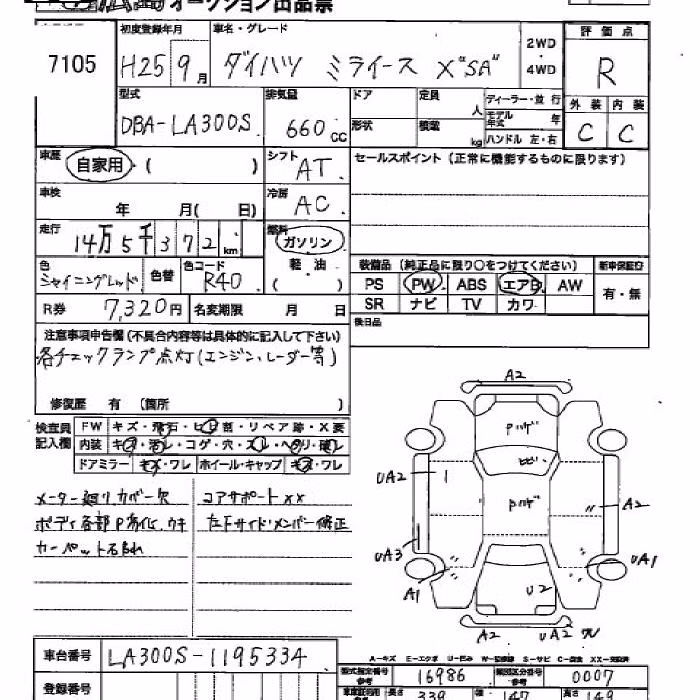 オークション出品票
7105
初度登録年月 車名・グレード
H25 9月 ダイハツ ミライース X"SA"
2WD・4WD
評価点
R
外装 内装
C C
型式 排気量 ドア 定員 人 ディーラー・並行
DBA-LA300S 660cc 形状 積載 kg モデル年式 年
ハンドル 左・右
車歴 自家用・( )
シフト AT
セールスポイント(正常に機能するものに限ります)
車検 年 月( 日)
冷房 AC
走行 14万5千372km
燃料 ガソリン・軽油・( )
色 シャイニングレッド 色替 色コード R40
装備品(純正品に限り○をつけてください) 新車保証書
PS PW ABS エアB AW
SR ナビ TV カワ
有・無
R券 7,320円 名変期限 月 日
後日品
注意事項申告欄(不具合内容等は具体的に記入して下さい)
各チェックランプ点灯(エンジン、レーダー等)
修復歴 有(箇所 )
検査員記入欄
FW キズ・飛石・ヒビ割・リペア跡・X要
内装 キズ・汚レ・コゲ・穴・スレ・ヘタリ・破レ
ドアミラー キズ・ワレ ホイール・キャップ キズ・ワレ
メーター廻りカバー欠
ボディ各部P劣化、ウキ
カーペット汚れ
コアサポートXX
左Fサイドメンバー修正
A2
Pハゲ
ヒビ
UA2
1
Pハゲ
A2
UA3
UA1
A1
U2
A2
UA2 ワレ
A-キズ E-エクボ U-凹み W-補修跡 S-サビ C-腐食 XX-交換済
車台番号 LA300S-1195334
登録番号
型式指定番号 参考 16986 類別区分番号 参考 0007
長さ 339 幅 147 高さ 149